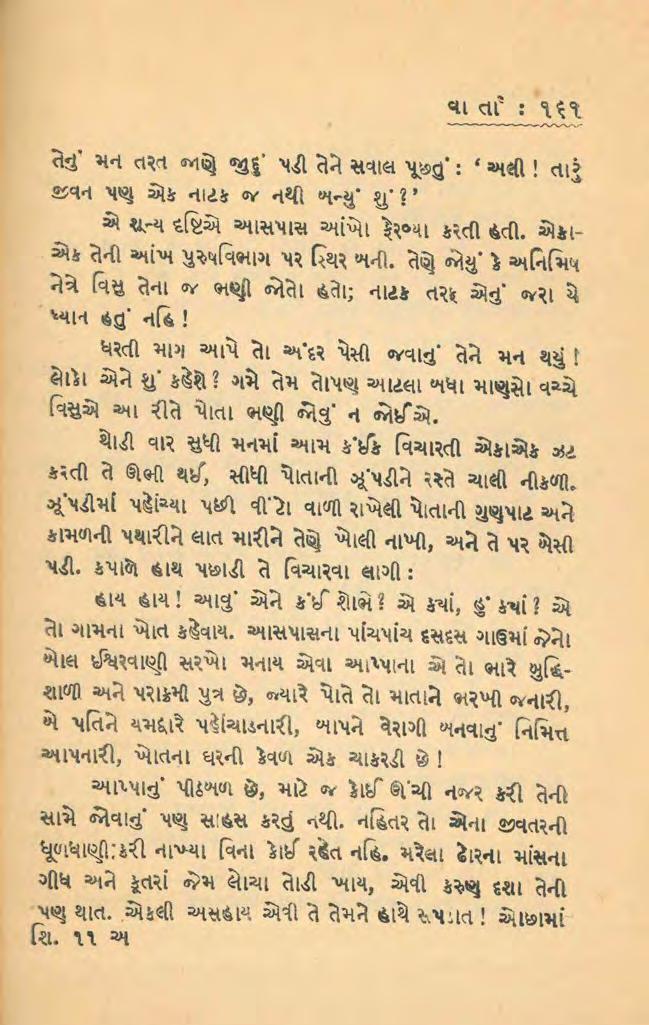 વા ર્તા : ૧૬૧
તેનું મન તરત જાણે જુદું પડી તેને સવાલ પૂછતું : ‘ અલી ! તારું
જીવન પણ એક નાટક જ નથી બન્યું શું ?’
એ શૂન્ય દૃષ્ટિએ આસપાસ આંખો ફેરવ્યા કરતી હતી. એકા-
એક તેની આંખ પુરુષવિભાગ પર સ્થિર બની. તેણે જોયું કે અનિમિષ
નેત્રે વિસુ તેના જ ભણી જોતો હતો; નાટક તરફ એનું જરા યે
ધ્યાન હતું નહિ !
ધરતી માગ આપે તો અંદર પેસી જવાનું તેને મન થયું !
લોકો એને શું કહેશે ? ગમે તેમ તોપણ આટલા બધા માણસો વચ્ચે
વિસુએ આ રીતે પોતા ભણી જોવું ન જોઈએ.
થોડી વાર સુધી મનમાં આમ કંઈક વિચારતી એકાએક ઝટ
કરતી તે ઊભી થઈ, સીધી પોતાની ઝૂંપડીને રસ્તે ચાલી નીકળી.
ઝૂંપડીમાં પહોંચ્યા પછી વીંટો વાળી રાખેલી પોતાની ગુણપાટ અને
કામળની પથારીને લાત મારીને તેણે ખોલી નાખી, અને તે પર બેસી
પડી. કપાળે હાથ પછાડી તે વિચારવા લાગી :
હાય હાય ! આવું એને કંઈ શોભે ? એ ક્યાં, હું ક્યાં ? એ
તો ગામના ખોત કહેવાય. આસપાસના પાંચપાંચ દસદસ ગાઉમાં જેનો
બોલ ઈશ્વરવાણી સરખો મનાય એવા આપ્પાના એ તો ભારે બુદ્ધિ-
શાળી અને પરાક્રમી પુત્ર છે, જ્યારે પોતે તો માતાને ભરખી જનારી,
બે પતિને યમદ્વારે પહોંચાડનારી, બાપને વેરાગી બનવાનું નિમિત્ત
આપનારી, ખોતના ઘરની કેવળ એક ચાકરડી છે !
આપ્પાનું પીઠબળ છે, માટે જ કોઈ ઊંચી નજર કરી તેની
સામે જોવાનું પણ સાહસ કરતું નથી. નહિતર તો એના જીવતરની
ધૂળધાણી કરી નાખ્યા વિના કોઈ રહેત નહિ. મરેલા ઢોરના માંસના
ગીધ અને કૂતરાં જેમ લોચા તોડી ખાય, એવી કરુણ દશા તેની
પણ થાત. એકલી અસહાય એવી તે તેમને હાથે સપડાત ! ઓછામાં
શિ. ૧૧ અ